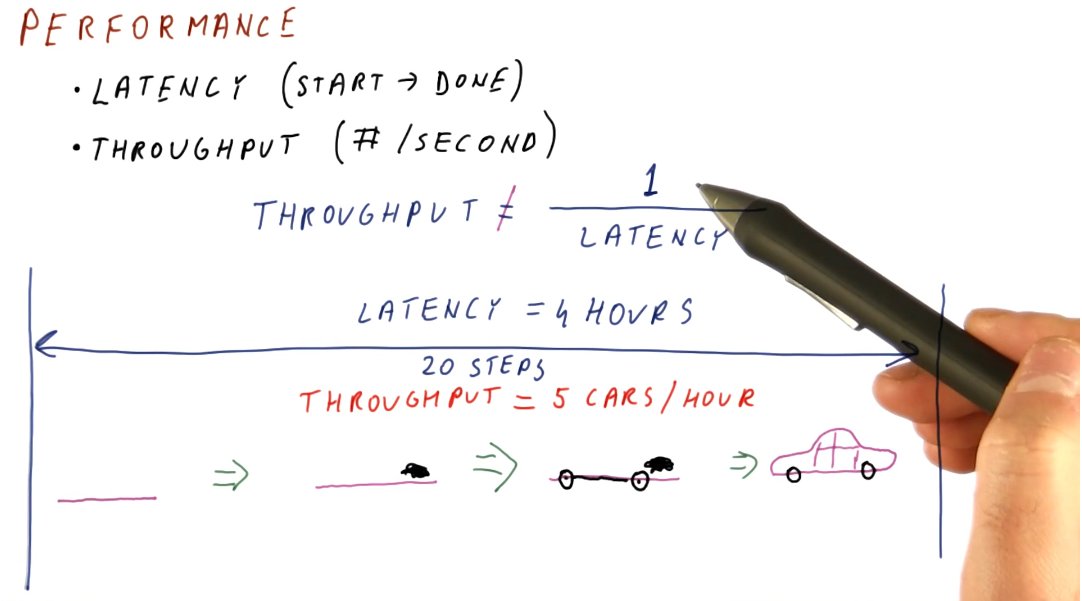 PERFORMANCE
• LATENCY (START → DONE)
• THROUGHPUT (# /SECOND)
THROUGHPUT ≠ 1 / LATENCY
LATENCY = 4 HOURS
20 STEPS
THROUGHPUT = 5 CARS/HOUR
⇒ ⇒ ⇒